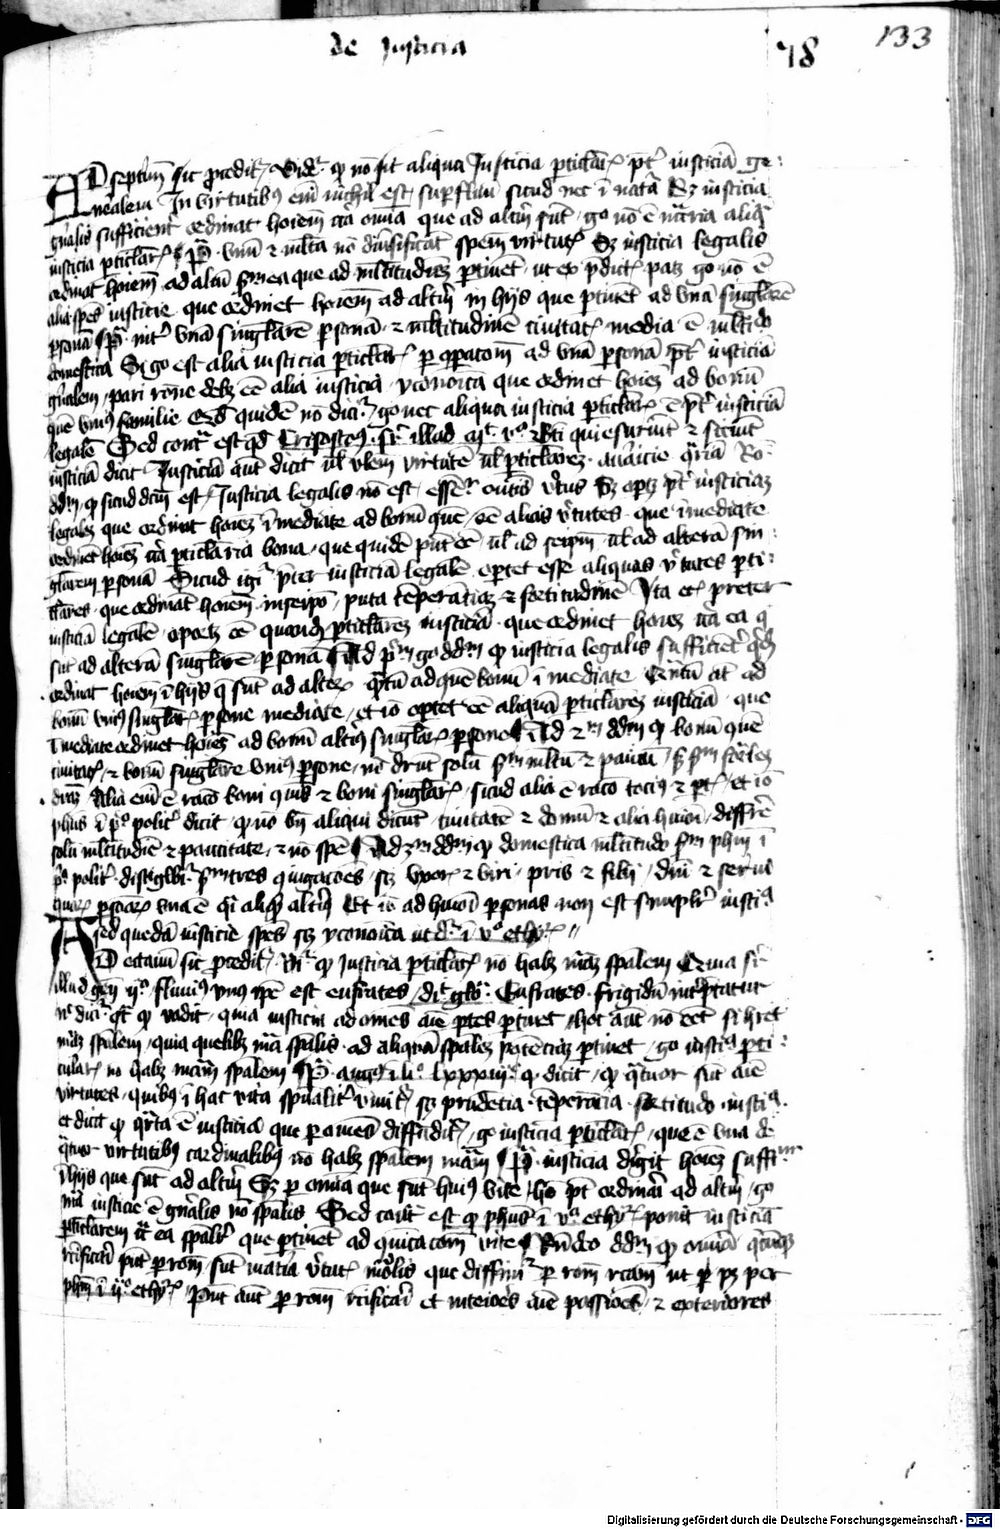 de Justicia
78
133
AD septimum sic procedit Videtur quod non sit aliqua Justicia particularis preter iusticiam ge
neralem In virtutibus enim nichil est superfluum sicud nec in natura Sed iusticia
generalis sufficienter ordinat hominem circa omnia que ad alterum sunt ergo non est necessaria aliqua
iusticia particularis Preterea unum et multa non diversificant speciem virtutis Sed iusticia legalis
ordinat hominem ad alium secundum ea que ad multitudinem pertinent ut ex predictis patet ergo non est
alia species iusticie que ordinet hominem ad alterum in hiis que pertinent ad unam singularem
personam Preterea inter unam singularem personam et multitudinem civitatis media est multitudo
domestica Si ergo est alia iusticia particularis per comparationem ad unam personam preter iusticiam
generalem pari ratione debet esse alia iusticia yconomica que ordinet hominem ad bonum
commune unius familie Quod quidem non dicitur ergo nec aliqua iusticia particularis est preter iusticiam
legalem Sed contra est quod Crisostomus super illud Beati qui esuriunt et siciunt
iusticiam dicit Justiciam aut dicit vel universalem virtutem vel particularem avaricie contrariam
dicendum quod sicud dictum est Justicia legalis non est essentialiter omnis virtus Sed oportet preter iusticiam
legalem que ordinat hominem immediate ad bonum commune esse alias virtutes que immediate
ordinent hominem circa particularia bona que quidem possunt esse vel ad seipsum vel ad alteram sin
gularem personam Sicud igitur preter iusticiam legalem oportet esse aliquas virtutes parti
culares que ordinant hominem in seipso puta temperanciam et fortitudinem Ita eciam preter
iusticiam legalem oportet esse quandam particularem iusticiam que ordinet hominem circa ea que
sunt ad alteram singularem personam Ad primum ergo dicendum quod iusticia legalis sufficienter quidem
ordinat hominem in hiis que sunt ad alterum quantum ad commune bonum immediate Quantum autem ad
bonum unius singularis persone mediate et ideo oportet esse aliquam particularem iusticiam que
immediate ordinet hominem ad bonum alterius singularis persone Ad 2m dicendum quod bonum commune
civitatis et bonum singulare unius persone non differunt solum secundum multum et paucum sed secundum formalem
differenciam Alia enim est racio boni communis et boni singularis sicud alia est racio tocius et partis et ideo
philosophus in primo politicorum dicit quod non bene aliqui dicunt civitatem et domum et alia huiusmodi differre
solum multitudine et paucitate et non specie Ad 3m dicendum quod domestica multitudo secundum philosophum in
primo politicorum distinguitur secundum tres coniugaciones scilicet uxoris et viri patris et filii domini et servi
quarum personarum una est quasi aliquid alterius Et ideo ad huiusmodi personas non est simpliciter iusticia
sed quedam iusticie species scilicet yconomica ut dicitur in 5o ethicorum
AD octavum sic proceditur Videtur quod Justicia particularis non habet materiam specialem Quia super
illud gen 2o fluvius autem ipse est eufrates dicit glosa Eufrates frugifer interpretatur
nec dicitur contra quod vadit quia iusticia ad omnes anime partes pertinet hoc autem non esset si haberet
materiam specialem quia quelibet materia specialis ad aliquam specialem potenciam pertinet ergo iusticia parti
cularis non habet materiam specialem Preterea augustinus in libro lxxxiii q dicit quod quatuor sunt anime
virtutes quibus in hac vita spiritualiter vivitur scilicet prudencia temperancia fortitudo iusticia
et dicit quod quarta est iusticia que per omnes diffunditur ergo iusticia particularis que est una de
quatuor virtutibus cardinalibus non habet specialem materiam Preterea iusticia dirigit hominem sufficienter
in hiis que sunt ad alterum Sed per omnia que sunt huius vite homo potest ordinari ad alterum ergo
materia iusticie est generalis non specialis Sed contra est quod philosophus in 5o ethicorum ponit iusticiam
particularem circa ea specialiter que pertinent ad communicacionem vite Respondeo dicendum quod omnia quecumque
rectificari possunt per racionem sunt materia virtutis moralis que diffinitur per racionem rectam ut patet per
philosophum in 2o ethicorum Possunt autem per racionem rectificari et interiores anime passiones et exteriores
Digitalisierung gefördert durch die Deutsche Forschungsgemeinschaft - DFG